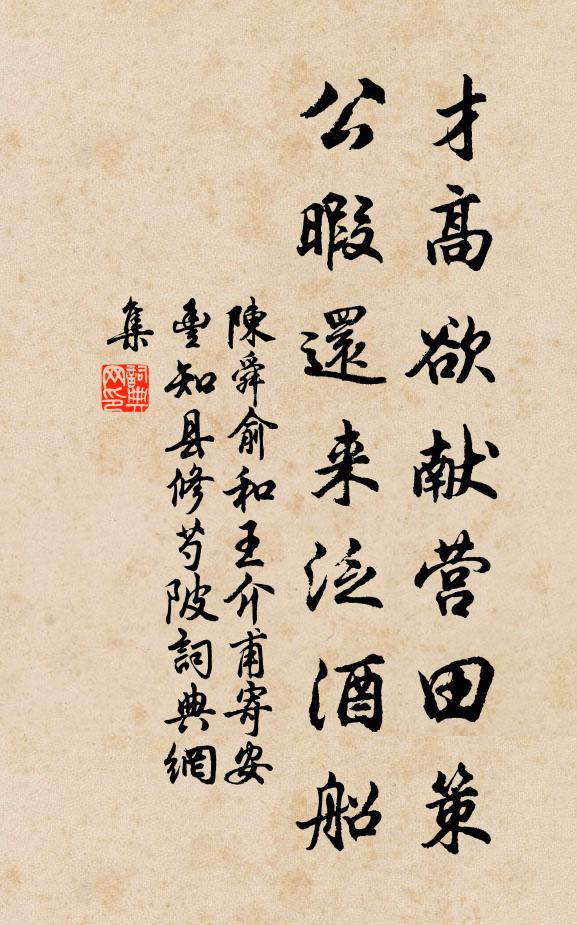 才高欲献营田策
公暇還来泛酒船
陳舜俞和王介甫寄安
豊知县修芍陂詞典網
集
詞典网印